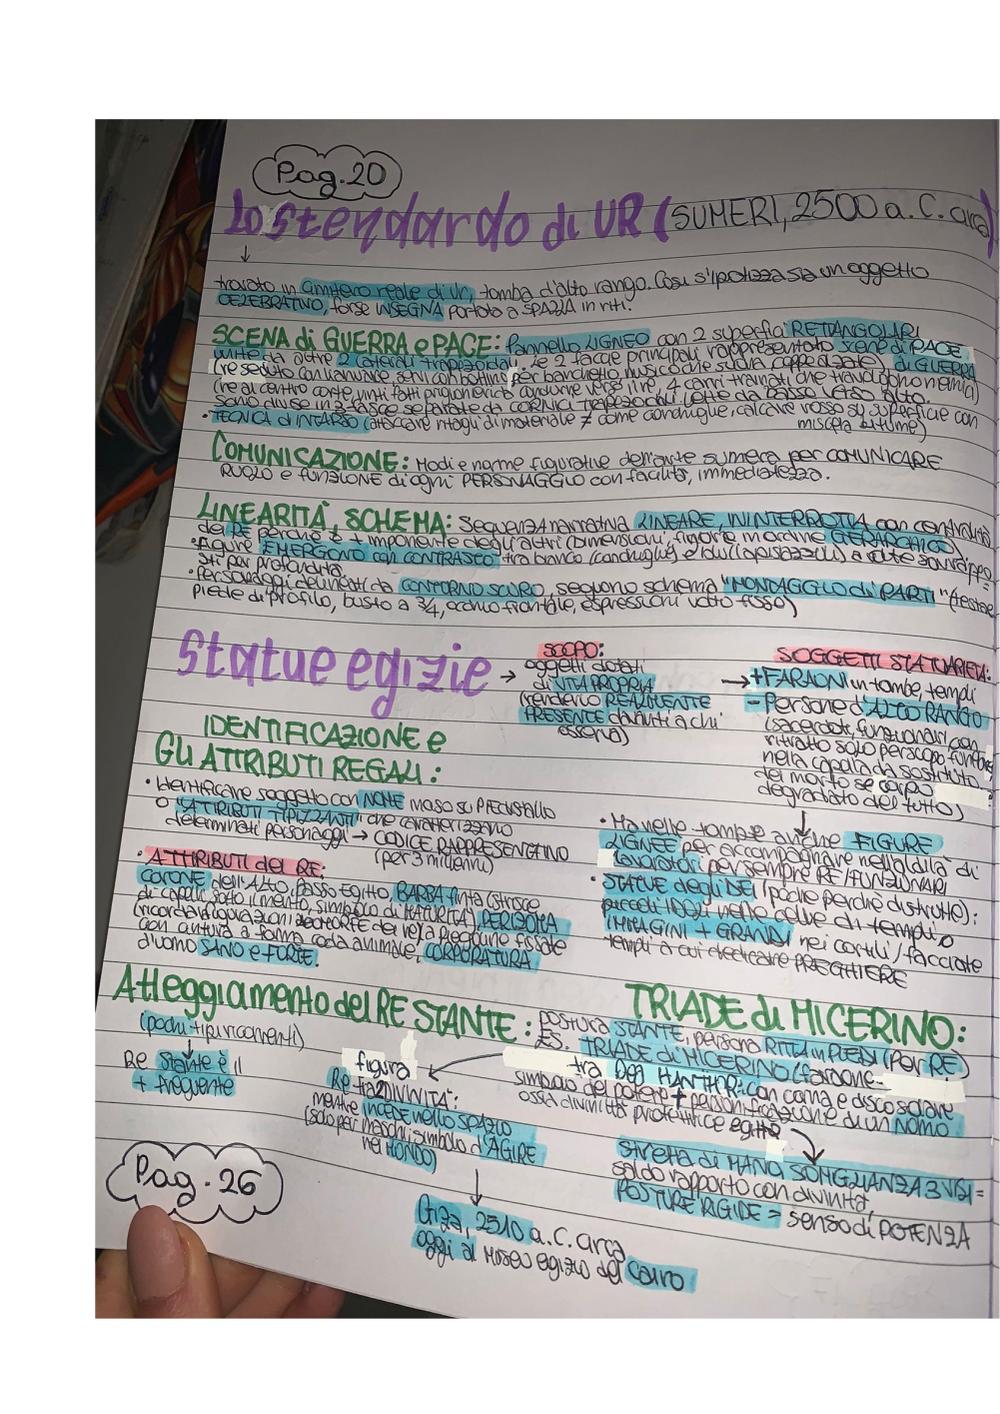 Pag.20
Lo stendardo di UR (SUMERI, 2500 a.C. circa)
trovato in cimitero reale di Ur, tomba d'alto rango. Così s'ipotizza sia un oggetto
CELEBRATIVO, forse INSEGNA portata a SPALLA in riti.
SCENA di GUERRA e PACE: Pannello LIGNEO con 2 superfici RETTANGOLARI
unite da altre 2 laterali trapezoidali. Le 2 facce principali rappresentato scene di PACE
(re seduto con servi con bottino per banchetto, musico che suona, coppe alzate) di GUERRA
(re al centro corte, vinti fatti prigionieri condurre verso il re, 4 carri trainati che travolgono nemici)
sono divise in 3 fasce separate da CORNICI lette da basso verso alto.
• TECNICA di INTARSIO (attaccare ritagli di materiale ≠ come conchiglie, calcare rosso su superficie con
miscela bitume)
COMUNICAZIONE: Modi e norme figurative dell'arte sumera per COMUNICARE
RUOLO e FUNZIONE di ogni PERSONAGGIO con facilità, immediatezza.
LINEARITÀ, SCHEMA: Sequenza narrativa LINEARE, ININTERROTTA con centralità
del RE perché è + imponente degli altri (dimensioni, figure in ordine GERARCHICO).
• Figure EMERGONO con CONTRASTO tra bianco (conchiglie) e blu (lapislazzuli) a volte sovrappo-
sti per profondità.
• Personaggi delineati da CONTORNO SCURO, seguono schema "MONTAGGIO di PARTI" (testa e
piede di profilo, busto a 3/4, occhio frontale, espressioni volto fisso)
Statue egizie →
SCOPO:
oggetti dotati
di VITA PROPRIA
(renderlo REALMENTE
PRESENTE davanti a chi
osserva)
SOGGETTI STATUARIETÀ:
→ + FARAONI in tombe, templi
- Persone d'ALTO RANGO
(sacerdoti, funzionari con
ritratto solo per scopo funebre
nella cappella da sostituto
del morto se corpo
degradato del tutto)
IDENTIFICAZIONE e
GLI ATTRIBUTI REGALI:
• Identificare soggetto con NOME messo su PIEDISTALLO
o "ATTRIBUTI TIPIZZANTI" che caratterizzano
determinati personaggi → CODICE RAPPRESENTATIVO
(per 3 millenni)
• ATTRIBUTI del RE:
CORONE dell'Alto, Basso Egitto, BARBA finta (strisce
di capelli sotto il mento, simbolo di MATURITÀ), PERIZOMA
con cintura a forma coda animale, CORPORATURA
d'uomo SANO e FORTE.
• Ma nelle tombe anche FIGURE
LIGNEE per accompagnare nell'aldilà di
lavoratori per sempre RE/FUNZIONARI
• STATUE degli DEI (poche perché distrutte):
piccoli IDOLI nelle celle di templi o
IMMAGINI + GRANDI nei cortili/facciate
templi a cui dedicare PREGHIERE
Atteggiamento del RE STANTE:
(pochi + tipi ricorrenti)
Re stante è il
+ frequente
TRIADE di MICERINO:
POSTURA STANTE, persona RITTA in PIEDI (per RE)
ES. TRIADE di MICERINO (faraone
tra DEA HATHOR: con corna e disco solare
simbolo del potere + personificazione di un NOMO
ossia divinità protettrice egitto
figura
Re tra 2 DIVINITÀ:
mentre INCEDE nello SPAZIO
(solo per maschi, simbolo d'AGIRE
nel MONDO)
STRETTA di MANO, SOMIGLIANZA 3 VISI =
saldo rapporto con divinità,
POSTURE RIGIDE = senso di POTENZA
Giza, 2510 a.C. circa
oggi al Museo egizio del Cairo
Pag. 26